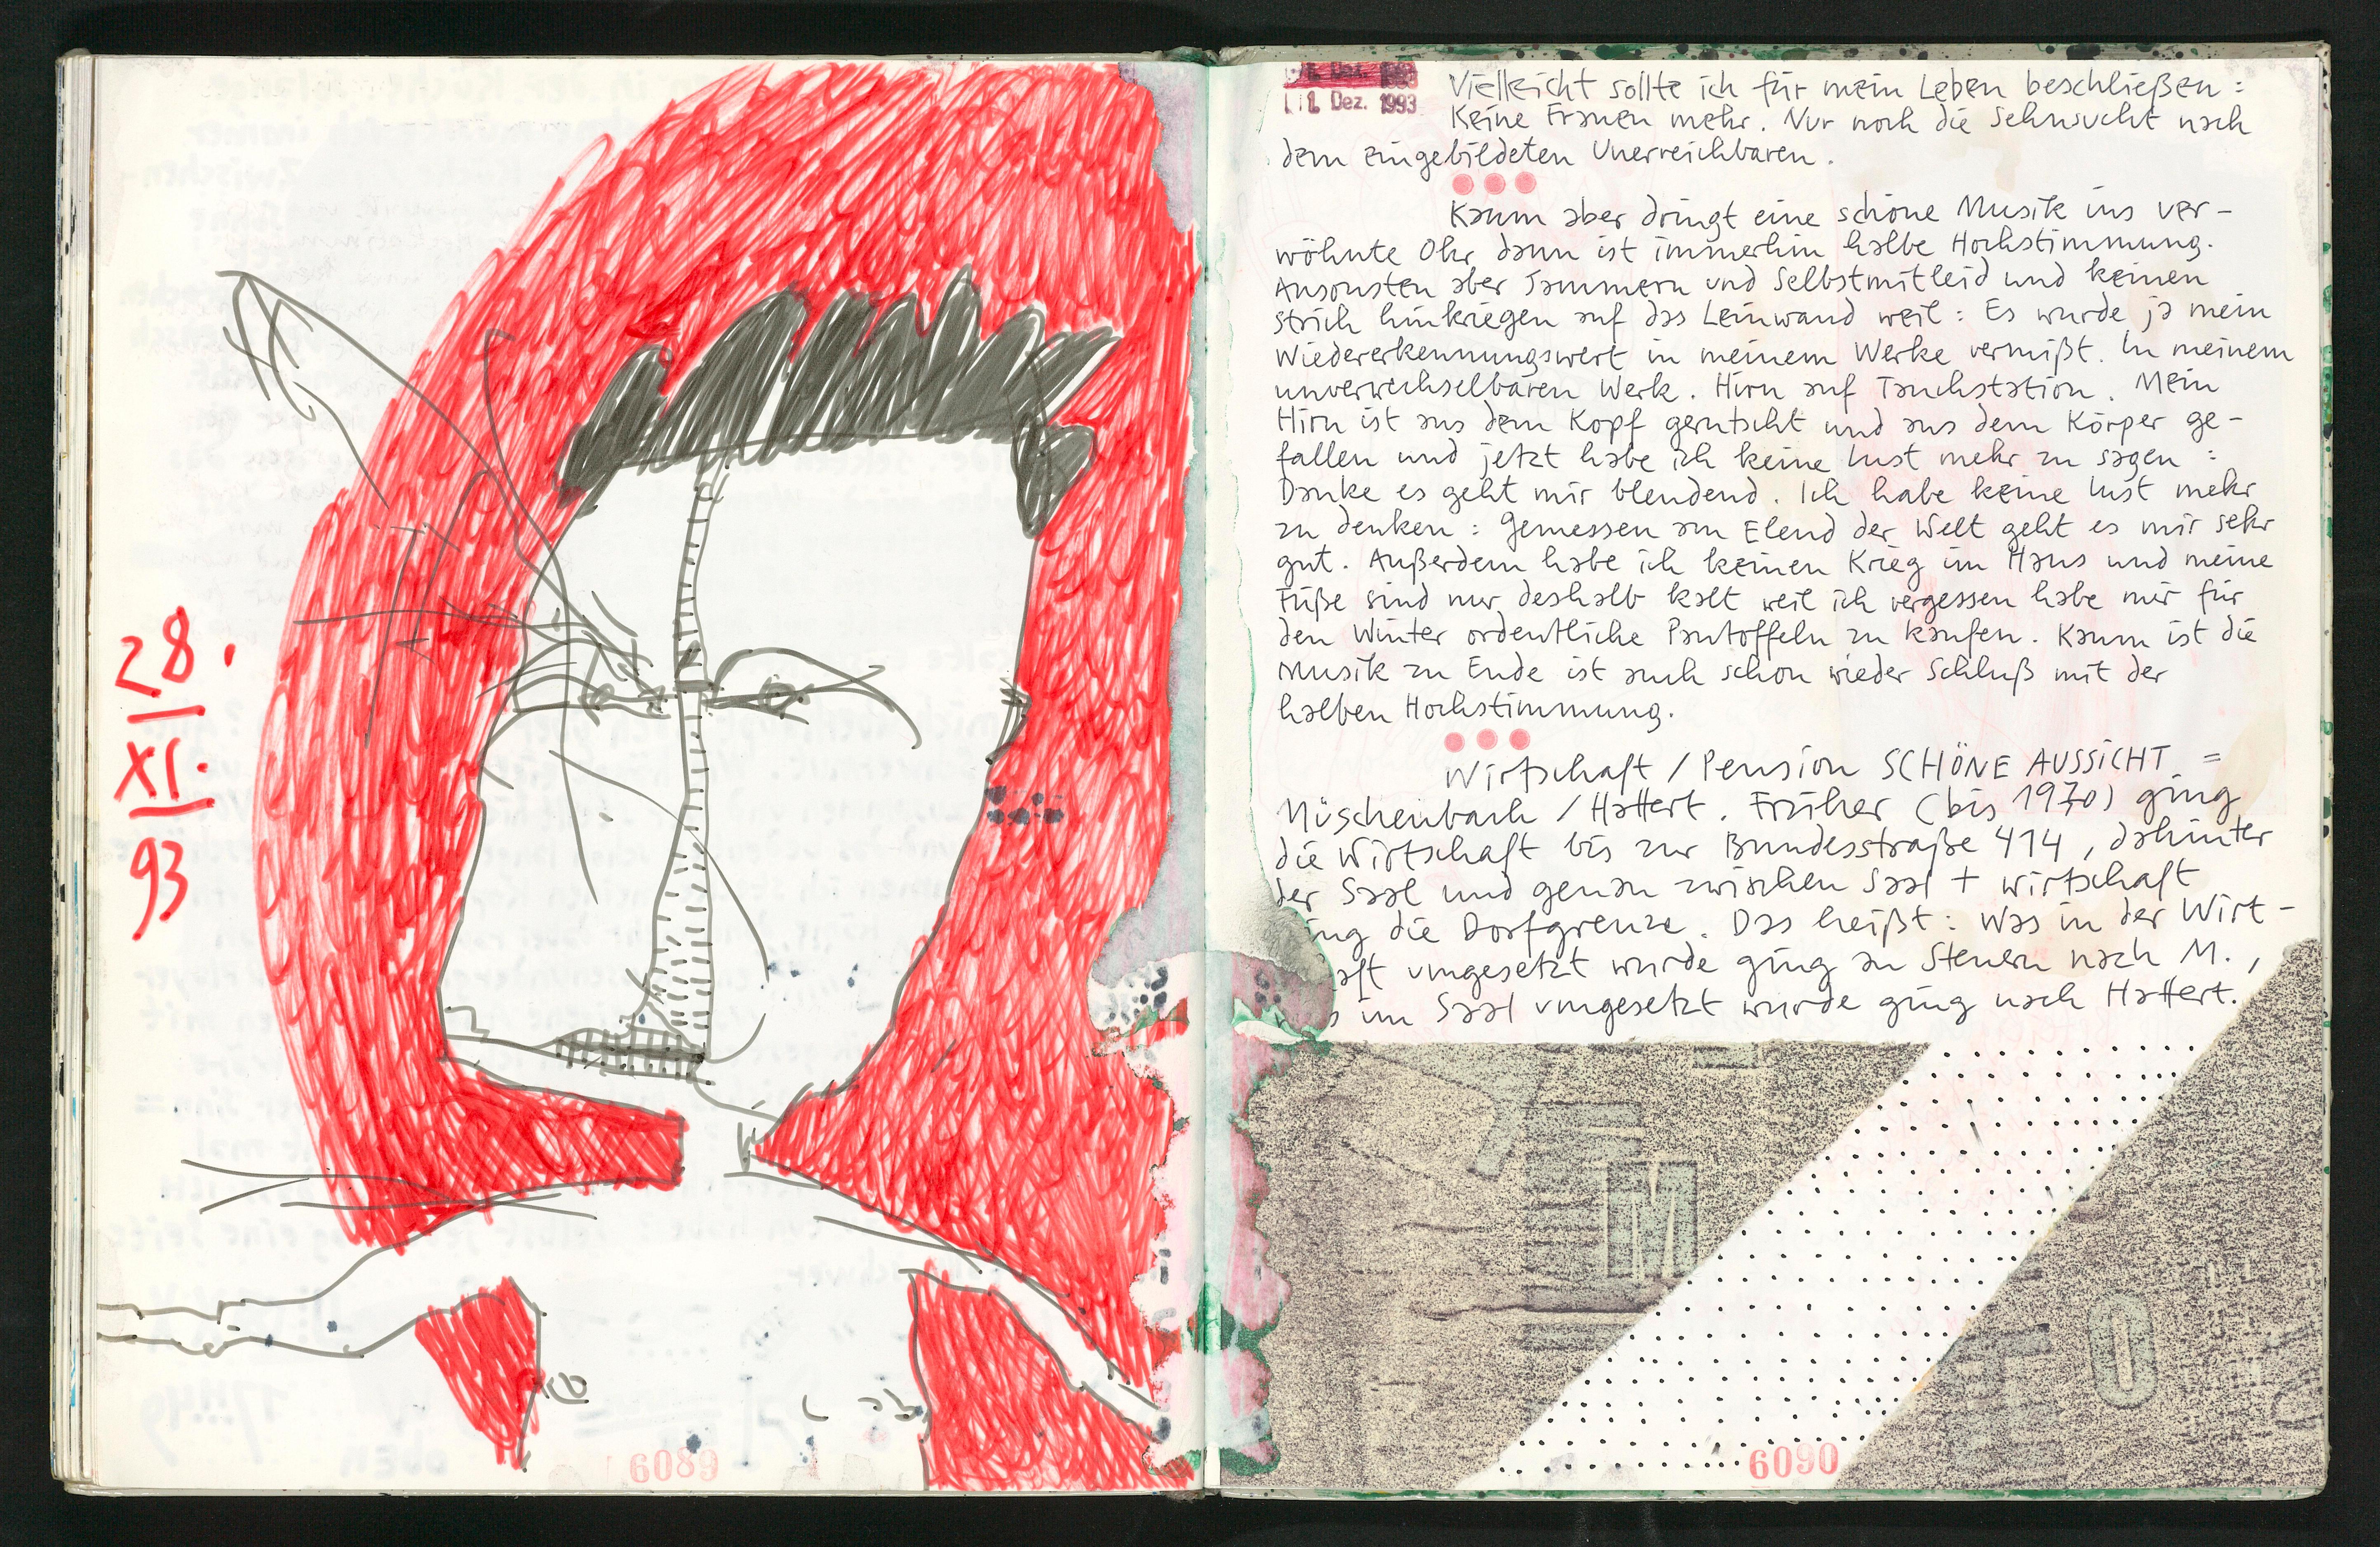 28.
XI.
93
6089
1. Dez. 1993
Vielleicht sollte ich für mein Leben beschließen:
Keine Frauen mehr. Nur noch die Sehnsucht nach
dem eingebildeten Unerreichbaren.
Kaum aber dringt eine schöne Musik ins ver-
wöhnte Ohr dann ist immerhin halbe Hochstimmung.
Ansonsten aber Jammern und Selbstmitleid und keinen
Strich hinkriegen auf das Leinwand weil: Es wurde ja mein
Wiedererkennungswert in meinem Werke vermißt. In meinem
unverwechselbaren Werk. Hirn auf Tauchstation. Mein
Hirn ist aus dem Kopf gerutscht und aus dem Körper ge-
fallen und jetzt habe ich keine Lust mehr zu sagen:
Danke es geht mir blendend. Ich habe keine Lust mehr
zu denken: Gemessen am Elend der Welt geht es mir sehr
gut. Außerdem habe ich keinen Krieg im Haus und meine
Füße sind nur deshalb kalt weil ich vergessen habe mir für
den Winter ordentliche Pantoffeln zu kaufen. Kaum ist die
Musik zu Ende ist auch schon wieder Schluß mit der
halben Hochstimmung.
Wirtschaft / Pension SCHÖNE AUSSICHT =
Müschenbach / Hattert. Früher (bis 1970) ging
die Wirtschaft bis zur Bundesstraße 414, dahinter
der Saal und genau zwischen Saal + Wirtschaft
ing die Dorfgrenze. Das heißt: Was in der Wirt-
aft umgesetzt wurde ging an Steuern nach M.,
s im Saal umgesetzt wurde ging nach Hattert.
M
O
6090